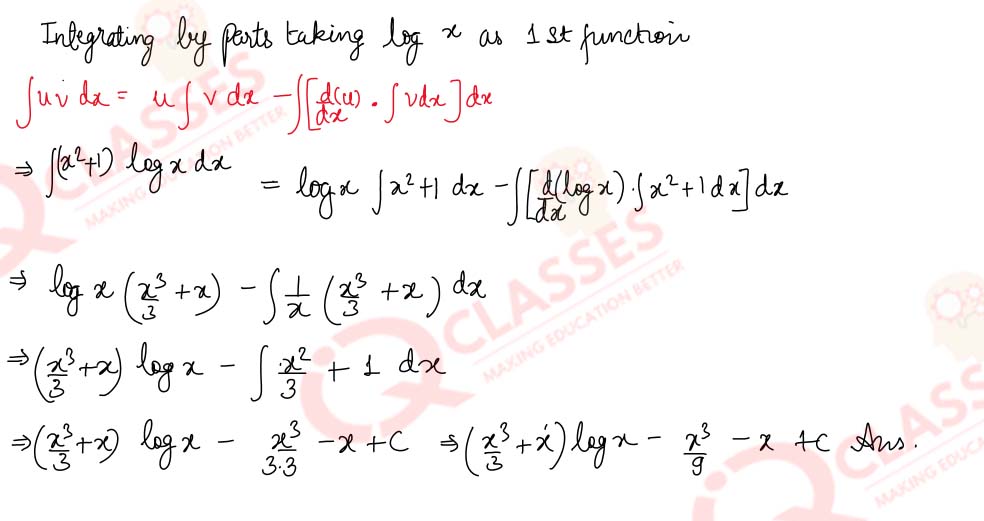 Integrating by parts taking log x as 1st function
∫uv dx = u∫v dx − ∫[d(u)/dx · ∫vdx]dx
⇒ ∫(x²+1) log x dx = log x ∫x²+1 dx − ∫[d(log x)/dx · ∫x²+1 dx]dx
⇒ log x (x³/3 + x) − ∫1/x (x³/3 + x) dx
⇒ (x³/3 + x) log x − ∫x²/3 + 1 dx
⇒ (x³/3 + x) log x − x³/3·3 − x + C ⇒ (x³/3 + x) log x − x³/9 − x + C Ans.
CLASSES
MAKING EDUCATION BETTER
CLASSES
MAKING EDUCATION BETTER
CLASSES
MAKING EDUCATION